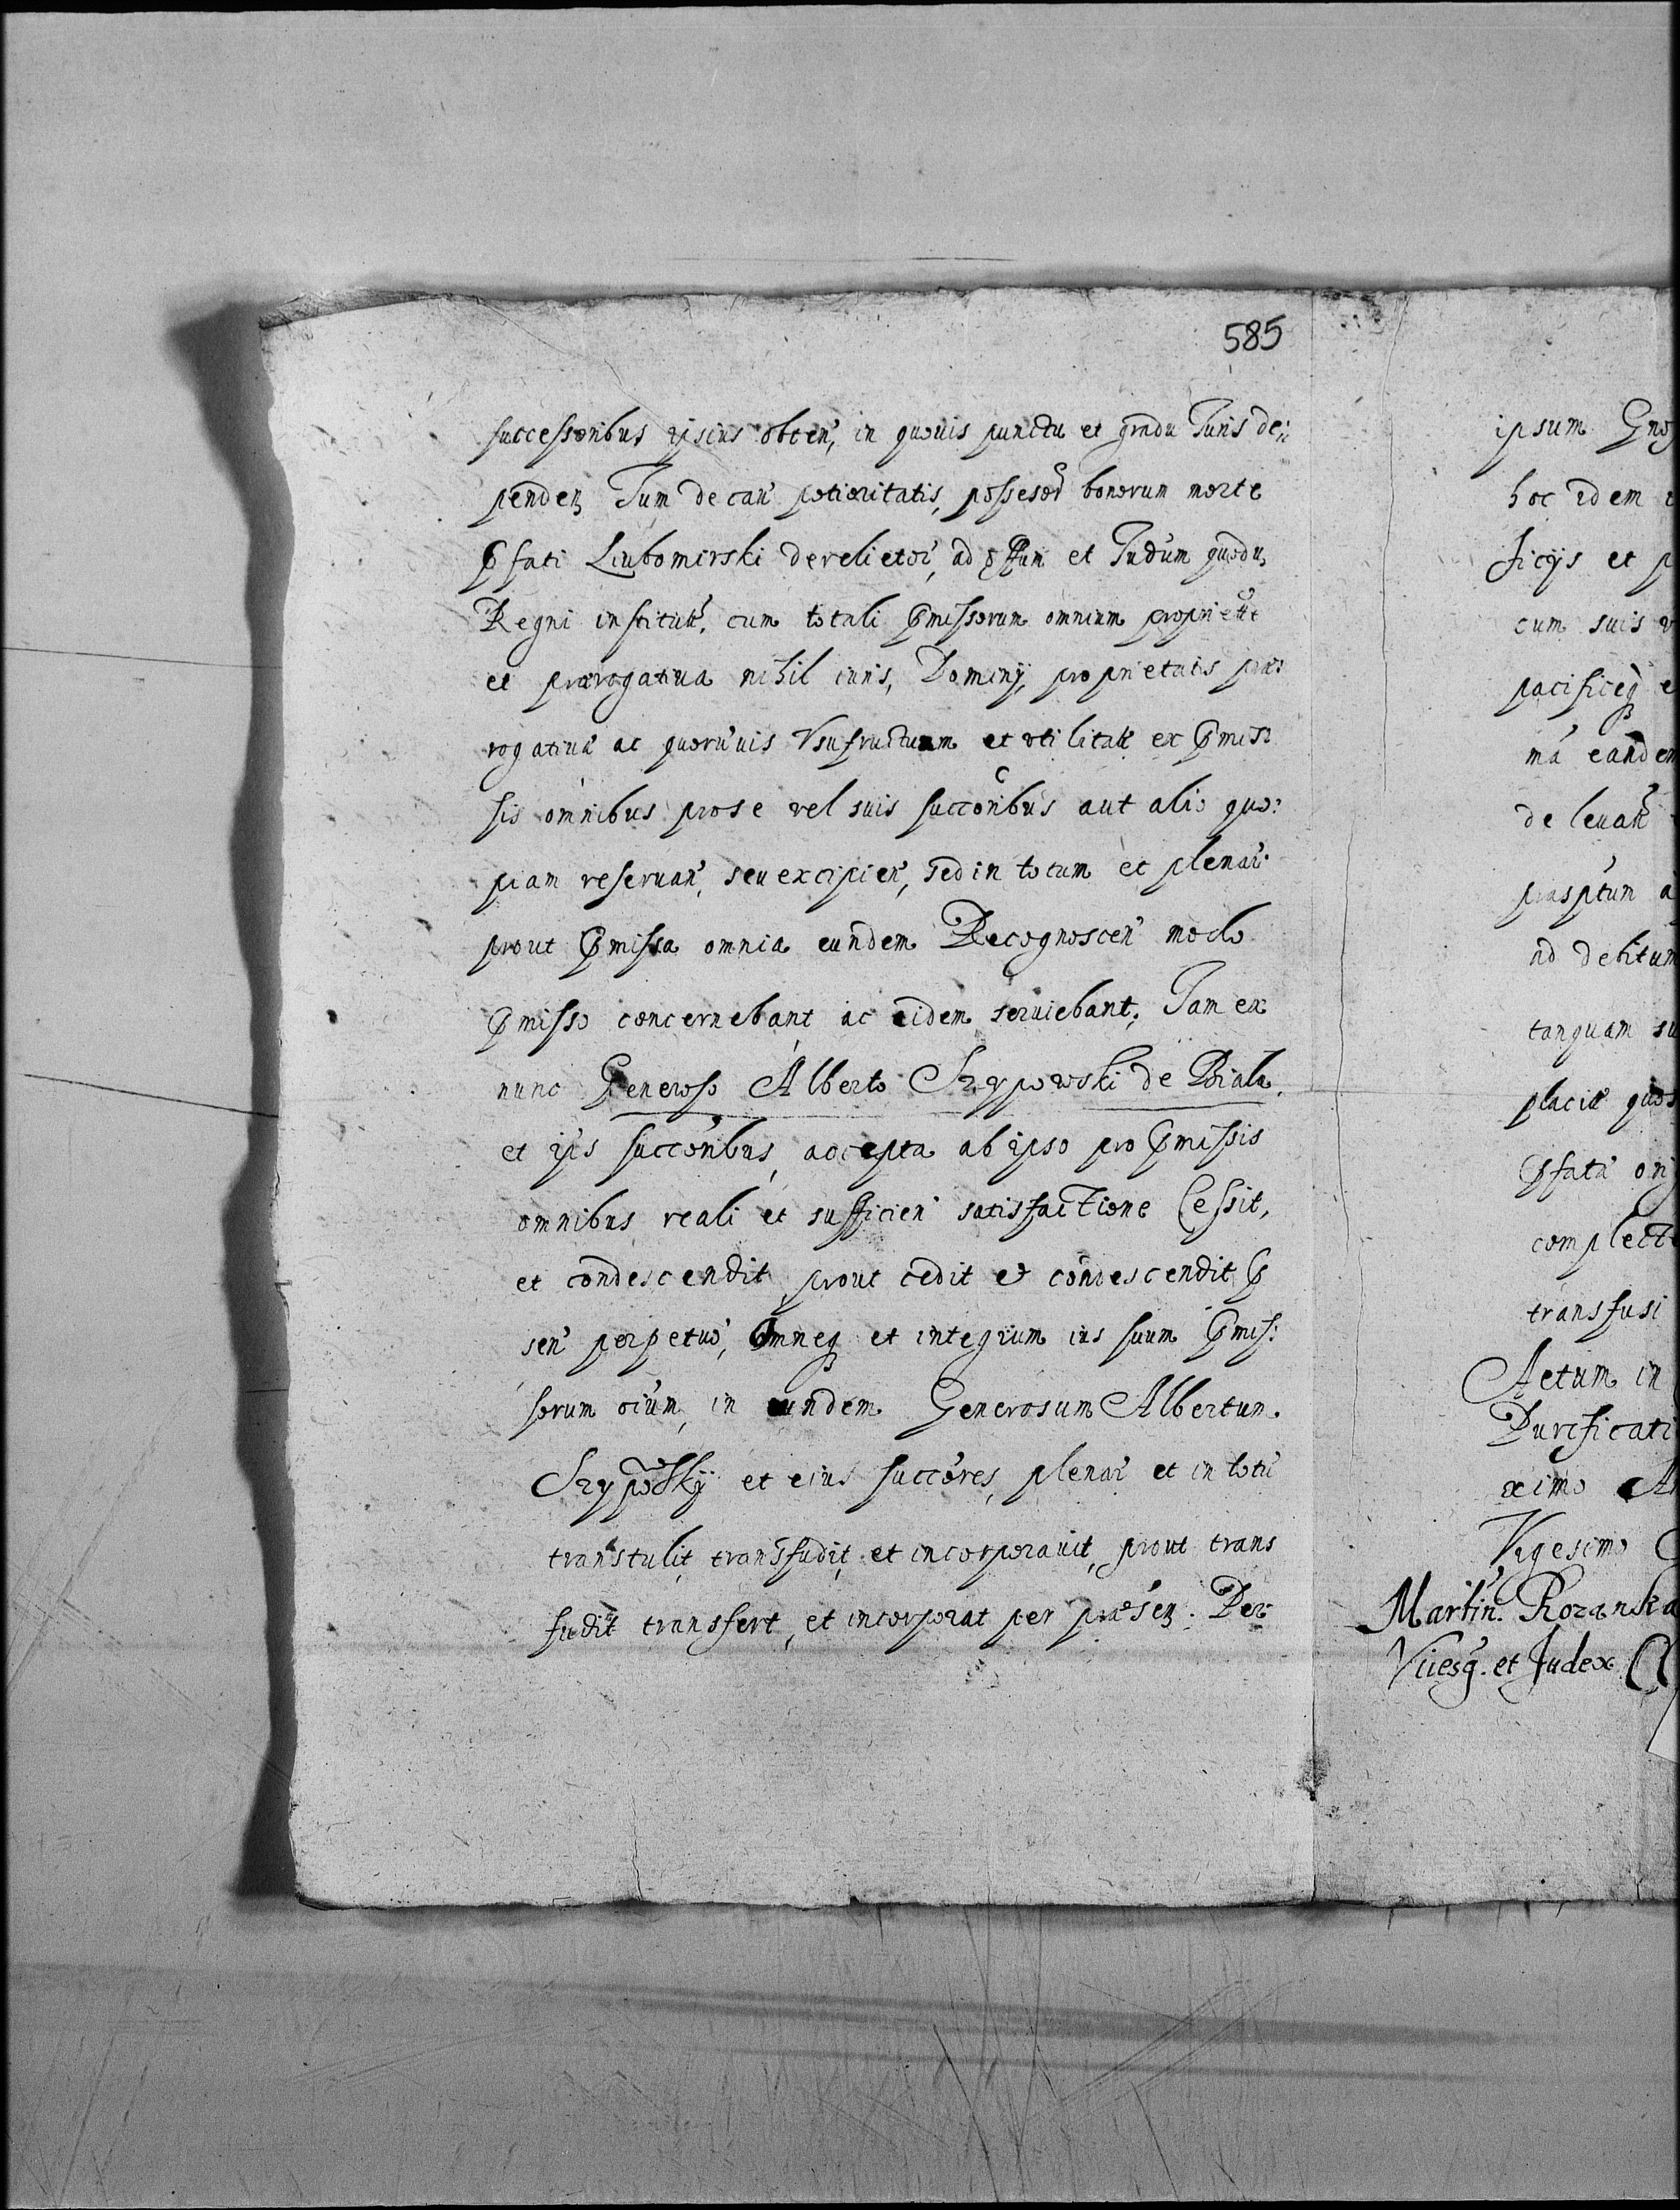 585
successoribus ipsius obten, in quouis punctu et gradu Juris de:
penden Tum de cau potioritatis, possessor bonorum morte
Pfati Liubomirski derelictor, ad et Judum quodu
Regni institut. cum totali Pmissorum omnium propriette
et prærogatiua nihil iuris, Dominij, proprietatis præ:
rogatiuæ ac quoruuis Vsufructuum et vtilitat ex Pmis:
sis omnibus pro se vel suis succoribus aut alio quo:
piam reseruan, seu excipien, sed in totum et plenar
prout Pmissa omnia eundem Recognoscen modo
Pmisso concernebant ac eidem seruiebant. Jam ex
nunc Generoso Alberto Szypowski de Biala
et ipis succoribus, accepta ab ipso pro Pmissis
omnibus reali et sufficien satisfactione Cessit,
et condescendit, prout cedit et condescendit P
sen perpetuo, Omneq et integrum ius suum Pmis:
sorum oium, in eundem Generosum Albertum
Szypowskij et eius succores, plenar et in totu
transtulit, transfudit, et incorporauit, prout trans
fudit transfert, et incorporat per præsen. Der
ipsum Gnos
hoc idem
ficijs et p
cum suis v
pacificeq e
ma eandem
de leuan
præsptum a
ad debitum
tanquam su
placit quos
Pfata ori
complect
transfusi
Actum in
Purificati
ximo A
Vigesimo
Martin. Rozanka
Viiesg. et Judex